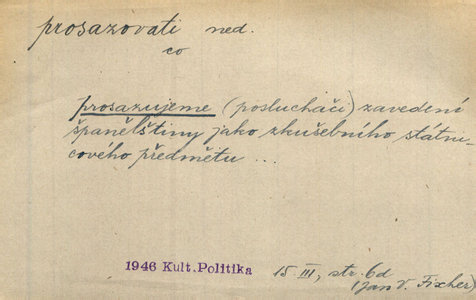 prosazovati ned.
co
prosazujeme (posluchači) zavedení
španělštiny jako zkušebního státni-
cového předmětu ...
1946 Kult. Politika 15. III, str. 6d
(Jan V. Fischer)